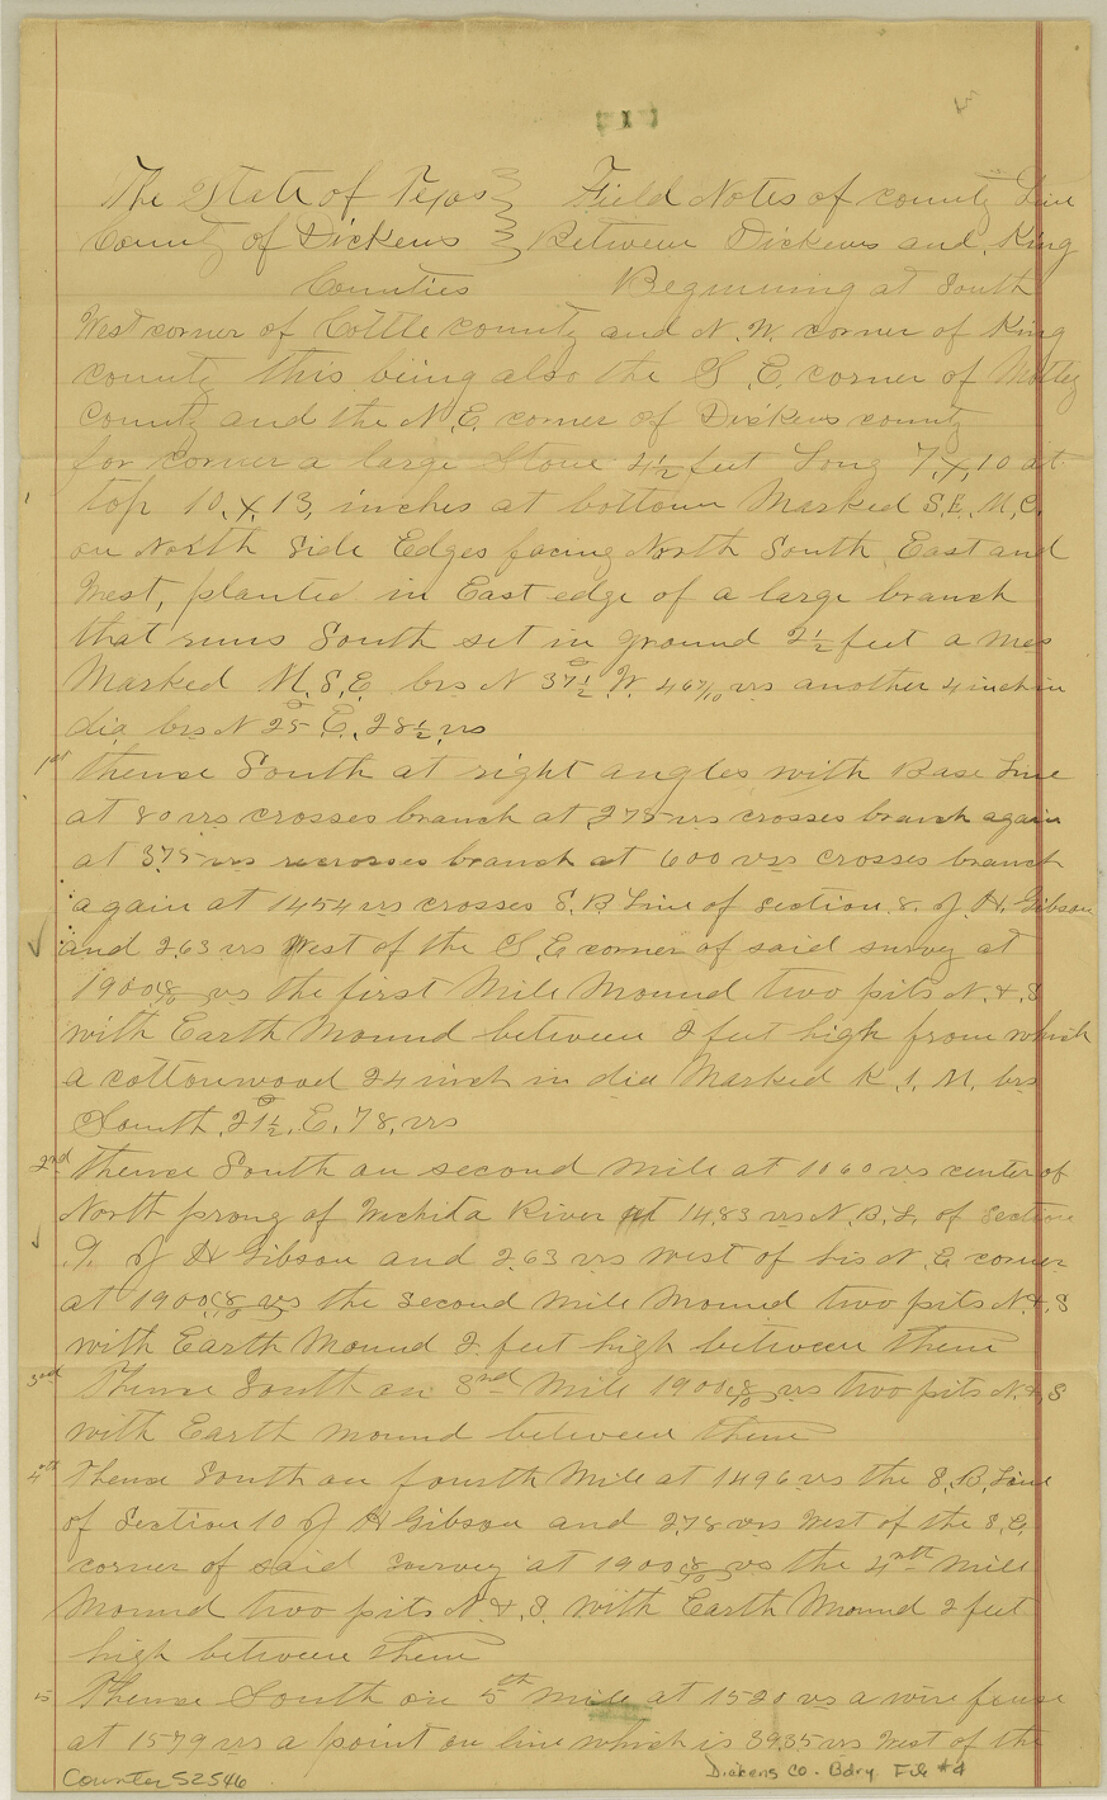 The State of Texas } Field Notes of county Line
County of Dickens } Between Dickens and King
Counties Beginning at South
West corner of Cottle county and N. W. corner of King
county this being also the S. E. corner of Motley
County and the N. E. corner of Dickens county
for corner a large Stone 4½ feet Long 7 x 10 at
top 10 x 13, inches at bottom Marked S. E. M. C.
on North Side Edges facing North South East and
West, planted in East edge of a large branch
that runs South set in ground 2½ feet a mes
Marked M. S. E. brs N 37½° W. 46 7/10 vrs another 4 inch in
dia brs N 25° E. 28½ vrs
1st Thence South at right angles with Base Line
at 80 vrs crosses branch at 275 vrs crosses branch again
at 375 vrs recrosses branch at 600 vrs crosses branch
again at 1454 vrs crosses S. B Line of Section 8. J. H. Gibson
and 263 vrs West of the S. E corner of said survey at
1900 8/10 vrs the first Mile Mound two pits N. & S
with Earth Mound between 2 feet high from which
a cottonwood 24 inch in dia Marked K. 1. M. brs
South 21½° E. 78, vrs
2nd Thence South on second mile at 1060 vrs center of
North prong of Wichita River at 1483 vrs N. B. L. of Section
9. J H Gibson and 263 vrs West of his N. E corner
at 1900 8/10 vrs the Second Mile Mound two pits N. & S
with Earth Mound 2 feet high between them
3rd Thence South on 3rd Mile 1900 8/10 vrs two pits N. & S
with Earth Mound between them
4th Thence South on fourth Mile at 1496 vrs the S. B. Line
of Section 10 J H Gibson and 278 vrs West of the S. E.
corner of said Survey at 1900 8/10 vrs the 4th Mile
Mound two pits N. & S. with Earth Mound 2 feet
high between them
5 Thence South on 5th mile at 1520 vrs a wire fence
at 1579 vrs a point on line which is 3935 vrs West of the
Counter 52546
Dickens Co. Bdry File #4